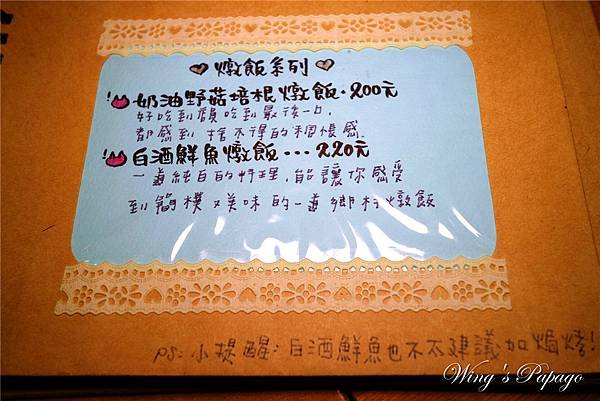 燉飯系列
奶油野菇培根燉飯・200元
好吃到頂吃到最後一口,
都感到 捨不得的稠懷感.
白酒鮮魚燉飯...220元
一道純白的料理,能讓你感受
到簡樸又美味的一道鄉村燉飯
PS: 小提醒: 白酒鮮魚也不太建議加焗烤!
Wing's Papago